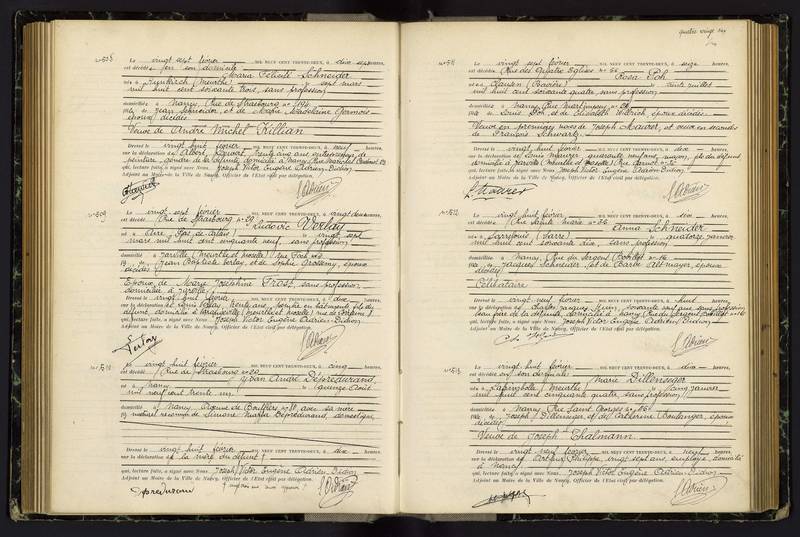 quatre vingt
N° 508
Le vingt sept février MIL NEUF CENT TRENTE-DEUX, à dix sept heures,
est décédée en son domicile
Maria Félicité Schneider
née à (Meurthe) le sept mars
mil huit cent soixante trois, sans profession
domiciliée à Nancy, Rue de Strasbourg n°
fille de Jean Schneider, et de Marie Madeleine
époux décédés
Veuve de André Michel Killian
Dressé le vingt huit février MIL NEUF CENT TRENTE-DEUX, à neuf heures,
sur la déclaration de Albert trente cinq ans, entrepreneur de
peinture, gendre de la défunte, domicilié à Nancy
qui, lecture faite, a signé avec Nous, Joseph Victor Eugène Adrien Didion
Adjoint au Maire de la Ville de Nancy, Officier de l'Etat civil par délégation.
N° 509
Le vingt sept février MIL NEUF CENT TRENTE-DEUX, à vingt deux heures,
est décédé Rue de Strasbourg n°
Ludovic Verlay
né à Aire (Pas de Calais) le vingt sept
mars mil huit cent cinquante neuf, sans profession
domicilié à Jarville (Meurthe et Moselle) Rue Foch
fils de Jean Baptiste Verlay, et de Sophie époux
décédés
Epoux de Marie Joséphine Frost, sans profession
domiciliée à Jarville
Dressé le vingt huit février MIL NEUF CENT TRENTE-DEUX, à dix heures,
sur la déclaration de Louis Verlay, trente ans, peintre en bâtiments, fils du
défunt, domicilié à (Meurthe et Moselle)
qui, lecture faite, a signé avec Nous, Joseph Victor Eugène Adrien Didion
Adjoint au Maire de la Ville de Nancy, Officier de l'Etat civil par délégation.
N° 510
Le vingt huit février MIL NEUF CENT TRENTE-DEUX, à cinq heures,
est décédé Rue de Strasbourg n°
Yvan André Déprédurand
né à Nancy le quinze Août
mil neuf cent trente un
domicilié à Nancy, Avenue de Boufflers n° avec sa mère
fils naturel reconnu de Simone Déprédurand, domestique
Dressé le vingt huit février MIL NEUF CENT TRENTE-DEUX, à dix heures,
sur la déclaration de la mère du défunt
qui, lecture faite, a signé avec Nous, Joseph Victor Eugène Adrien Didion
Adjoint au Maire de la Ville de Nancy, Officier de l'Etat civil par délégation.
N° 511
Le vingt sept février MIL NEUF CENT TRENTE-DEUX, à seize heures,
est décédée Rue des Quatre Eglises n°
Rosa Poh
née à (Bavière) le trente juillet
mil huit cent soixante quatre, sans profession
domiciliée à Nancy, Rue n°
fille de Louis Poh, et de Elisabeth époux décédés
Veuve en premières noces de Joseph Maurer, et veuve en secondes
de François Schwartz
Dressé le vingt huit février MIL NEUF CENT TRENTE-DEUX, à dix heures,
sur la déclaration de Louis Maurer, quarante neuf ans, maçon, fils du défunt
domicilié à (Meurthe et Moselle) Rue
qui, lecture faite, a signé avec Nous, Joseph Victor Eugène Adrien Didion
Adjoint au Maire de la Ville de Nancy, Officier de l'Etat civil par délégation.
L. Maurer
N° 512
Le vingt huit février MIL NEUF CENT TRENTE-DEUX, à dix heures,
est décédée Rue Sainte Marie n°
Anna Schneider
née à Sarrelouis (Sarre) le quatorze janvier
mil huit cent soixante dix, sans profession
domiciliée à Nancy, Rue du Sergent Bobillot n° 16
fille de Jacques Schneider, et de Barbe Altmayer, époux
décédés
Célibataire
Dressé le vingt neuf février MIL NEUF CENT TRENTE-DEUX, à huit heures,
sur la déclaration de Charles soixante neuf ans, sans profession
beau frère de la défunte, domicilié à Nancy, Rue du Sergent Bobillot n° 16
qui, lecture faite, a signé avec Nous, Joseph Victor Eugène Adrien Didion
Adjoint au Maire de la Ville de Nancy, Officier de l'Etat civil par délégation.
N° 513
Le vingt huit février MIL NEUF CENT TRENTE-DEUX, à dix heures,
est décédée en son domicile
Marie Dillenseger
née à (Meurthe) le cinq janvier
mil huit cent cinquante quatre, sans profession
domiciliée à Nancy, Rue Saint Georges n°
fille de Joseph Dillenseger, et de Catherine Boulanger, époux
décédés
Veuve de Joseph Thalmann
Dressé le vingt neuf février MIL NEUF CENT TRENTE-DEUX, à neuf heures,
sur la déclaration de Philippe, vingt sept ans, employé, domicilié
à Nancy
qui, lecture faite, a signé avec Nous, Joseph Victor Eugène Adrien Didion
Adjoint au Maire de la Ville de Nancy, Officier de l'Etat civil par délégation.